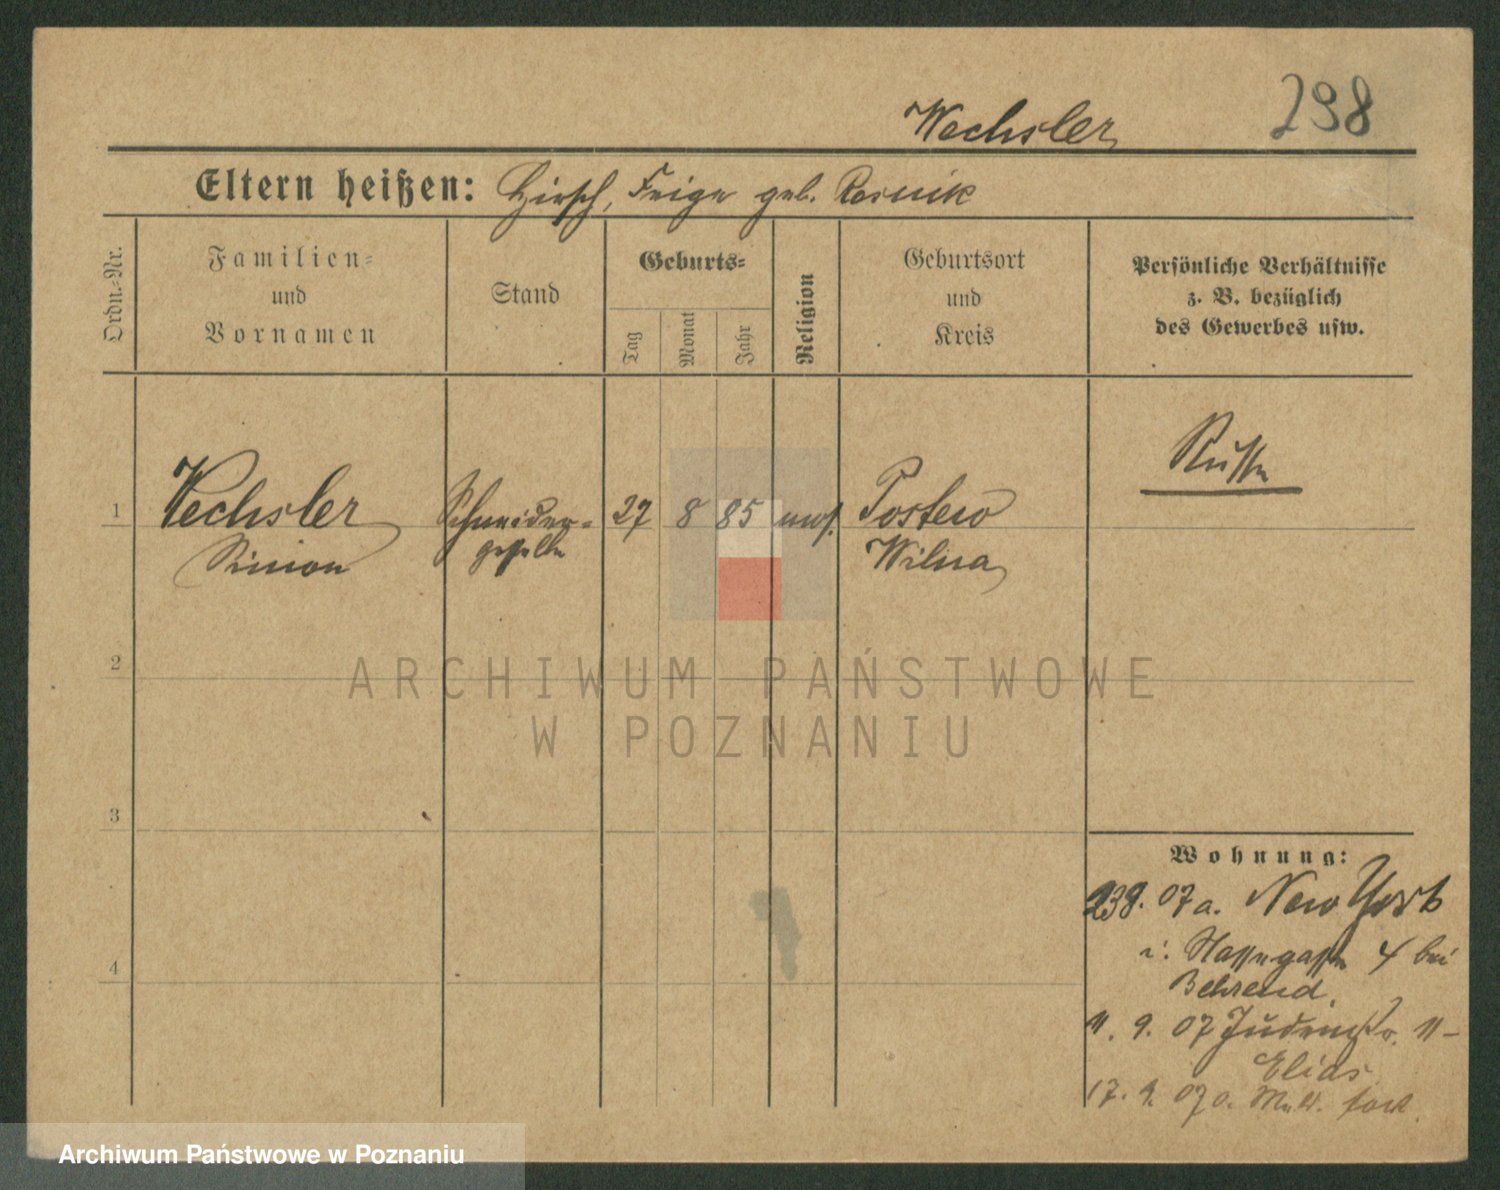 Wechsler
298
Eltern heißen: Hirsch, Feige geb. Rosnik
Ordn.-Nr.
Familien-
und
Vornamen
Stand
Geburts-
Tag
Monat
Jahr
Religion
Geburtsort
und
Kreis
Persönliche Verhältnisse
z. B. bezüglich
des Gewerbes usw.
Russe
1 Wechsler Schneider- 27 8 85 mos. Postew
Simon geselle Wilna
2
3
4
Wohnung:
07 a. New York
i. Wassergasse 4 bei
Behrend.
11. 9. 07 Judenstr. 11-
Elias
17. 9. 07 o. Meld. fort.
ARCHIWUM PAŃSTWOWE
W POZNANIU
Archiwum Państwowe w Poznaniu